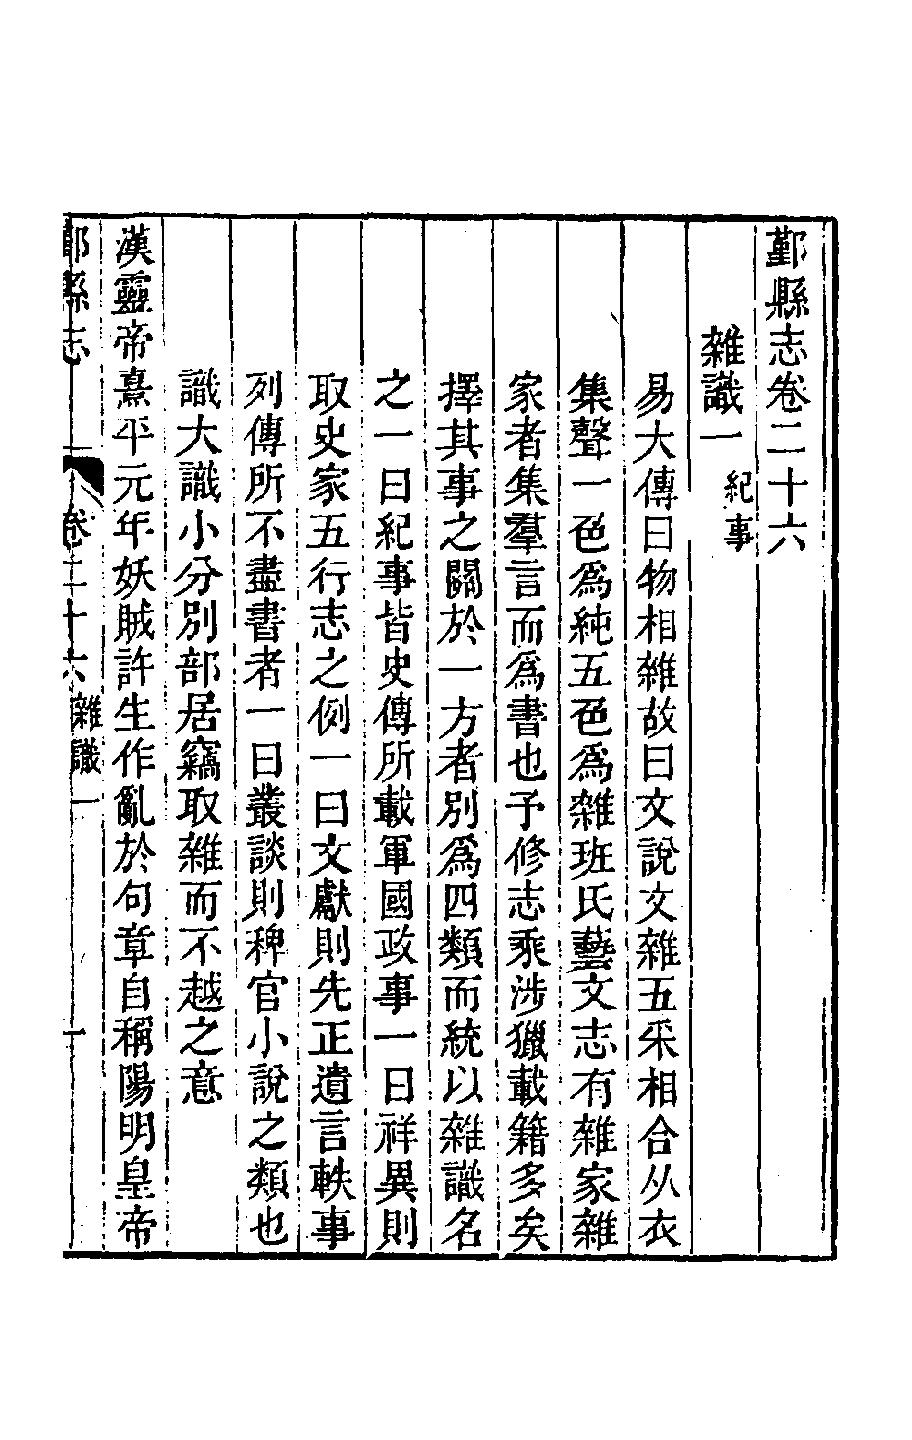 鄞縣志卷二十六
雜識一　紀事
易大傳曰物相雜故曰文說文雜五采相合从衣
集聲一色爲純五色爲雜班氏藝文志有雜家雜
家者集羣言而爲書也予修志乘涉獵載籍多矣
擇其事之關於一方者別爲四類而統以雜識名
之一曰紀事皆史傳所載軍國政事一曰祥異則
取史家五行志之例一曰文獻則先正遺言軼事
列傳所不盡書者一曰叢談則稗官小說之類也
識大識小分別部居竊取雜而不越之意
漢靈帝熹平元年妖賊許生作亂於句章自稱陽明皇帝
鄞縣志　卷二十六雜識一　一